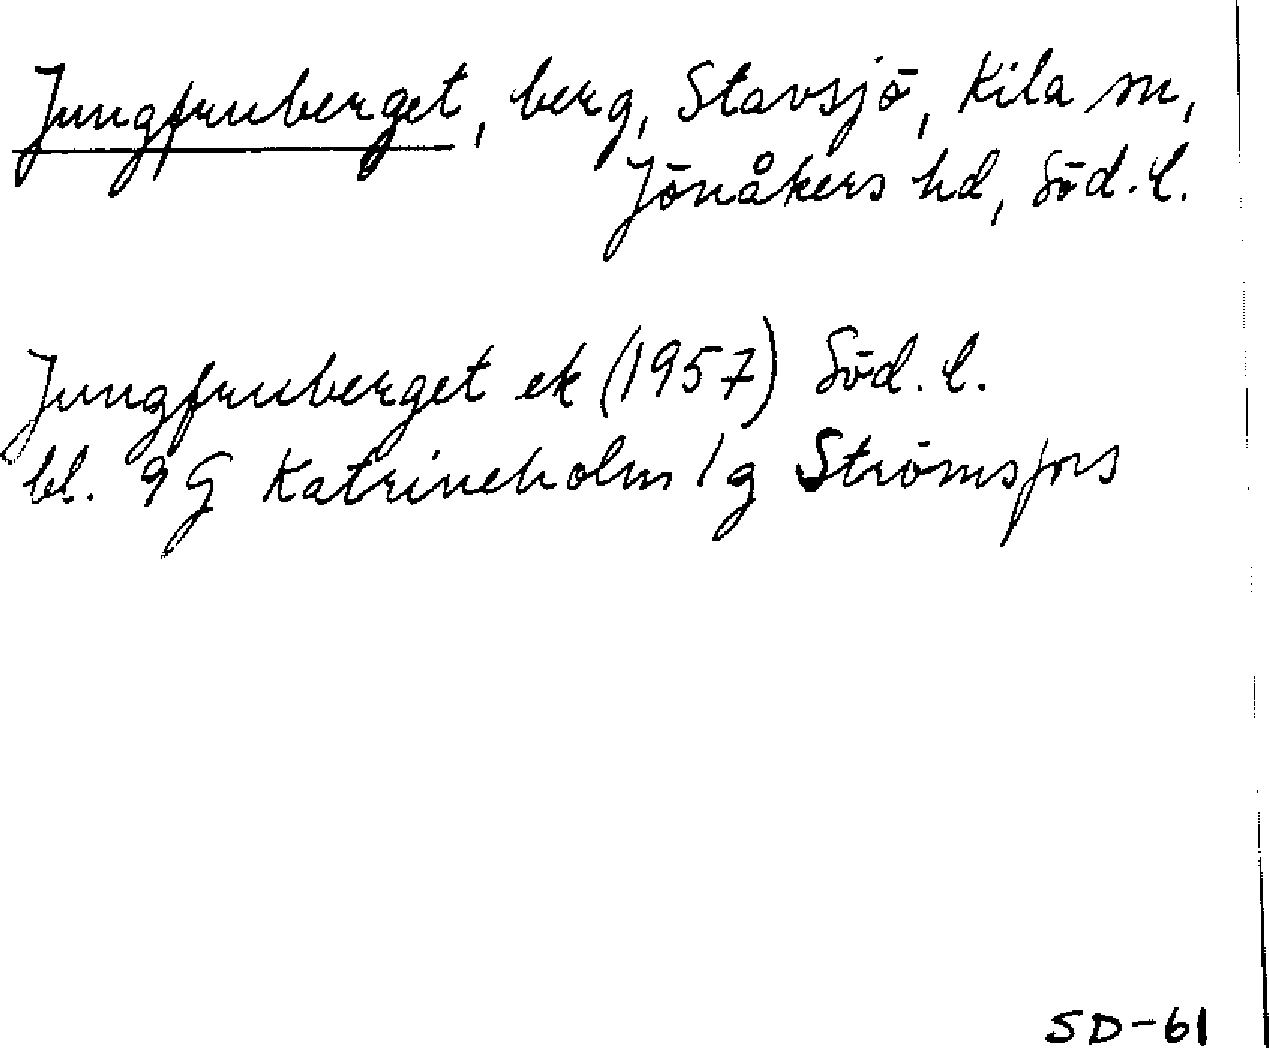 Jungfruberget, berg, Stavsjö, Kila sn,
Jönåkers hd, Söd. l.
Jungfruberget ek (1957) Söd. l.
bl. 9G Katrineholm/g Strömsfors
SD-61